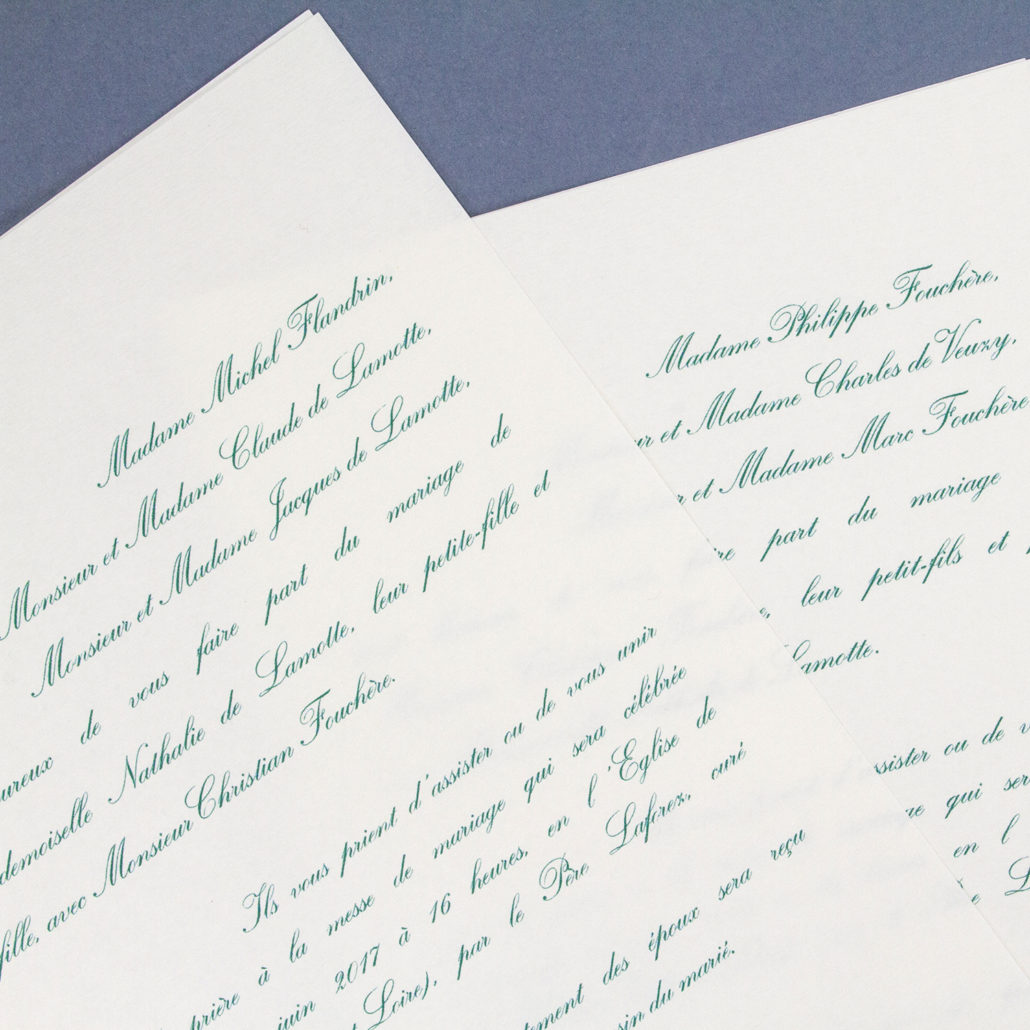 Madame Michel Flandrin,
Monsieur et Madame Claude de Lamotte,
Monsieur et Madame Jacques de Lamotte,
de vous faire part du mariage de
Nathalie de Lamotte, leur petite-fille et
fille, avec Monsieur Christian Fouchère.
Ils vous prient d'assister ou de vous unir
à la messe de mariage qui sera célébrée
juin 2017 à 16 heures, en l'Eglise de
Loire), par le Père Laforez, curé
des époux sera reçu
du marié.
Madame Philippe Fouchère,
et Madame Charles de Veuzy,
et Madame Marc Fouchère
part du mariage
leur petit-fils et
Lamotte.
ou de
qui
en l